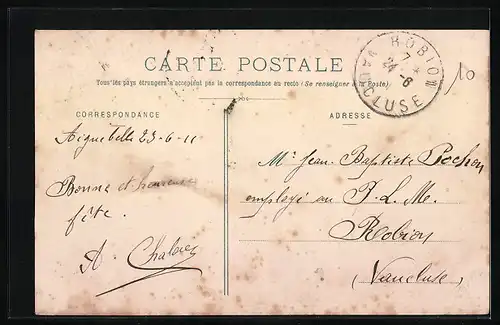 CARTE POSTALE
Tous les pays étrangers n'acceptent pas la correspondance au recto (Se renseigner à la Poste)
ROBION
7
24 - 6
VAUCLUSE
10
CORRESPONDANCE
ADRESSE
Aiguebelle 23-6-11
Bonne et heureuse
fête.
A.
Mr Jean Baptiste
employé au P. L. M.
Robion
(Vaucluse)